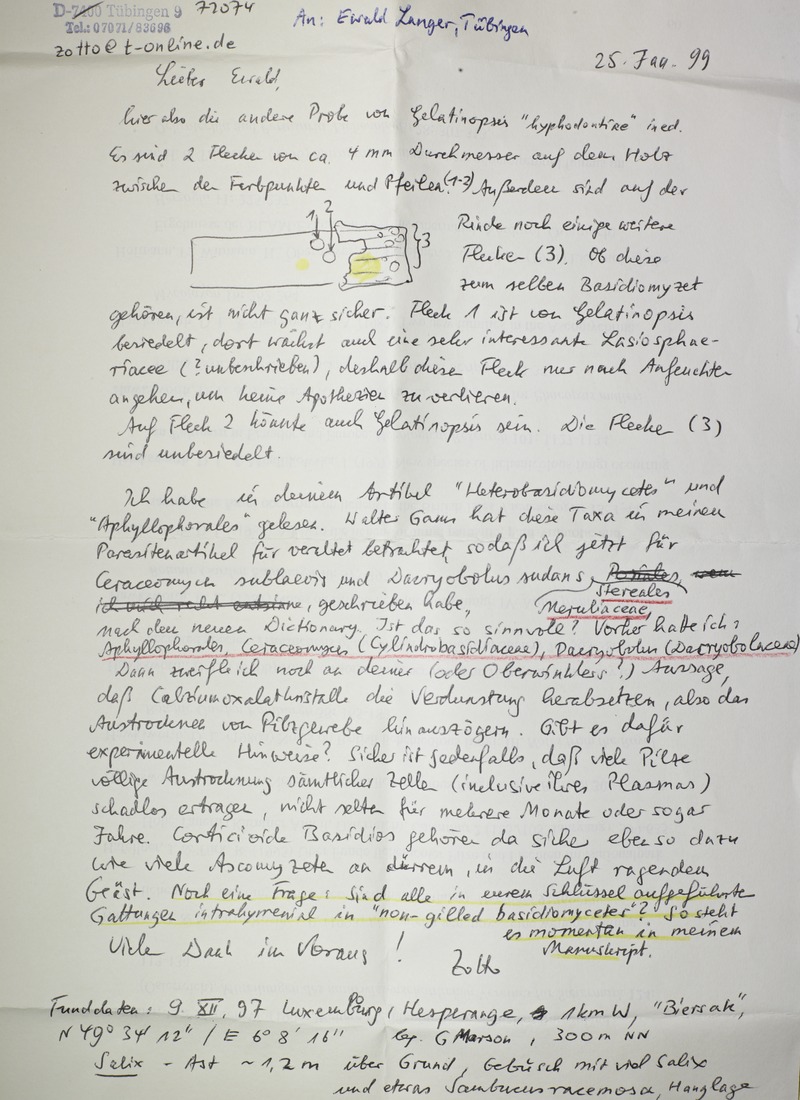 D-7400 Tübingen 9 72074
Tel.: 07071/83696
zotto@t-online.de
An: Ewald Langer, Tübingen
25. Jan. 99
Lieber Ewald,
hier also die andere Probe von Gelatinopsis "hyphodontiae" ined.
Es sind 2 Flecken von ca. 4 mm Durchmesser auf dem Holz
zwischen den Farbpunkten und Pfeilen (1-2) Außerdem sind auf der
1 2 3
Rinde noch einige weitere
Flecken (3). Ob diese
zum selben Basidiomyzet
gehören, ist nicht ganz sicher. Fleck 1 ist von Gelatinopsis
besiedelt, dort wächst auch eine sehr interessante Lasiosphae-
riacee (? unbeschrieben), deshalb diesen Fleck nur nach Anfeuchten
angehen, um keine Apothezien zu verlieren.
Auf Fleck 2 könnte auch Gelatinopsis sein. Die Flecken (3)
sind unbesiedelt.
Ich habe in deinem Artikel "Heterobasidiomycetes" und
"Aphyllophorales" gelesen. Walter Gams hat diese Taxa in meinem
Parasitenartikel für veraltet betrachtet, sodaß ich jetzt für
Ceraceomyces sublaevis und Dacryobolus sudans,
Stereales
, geschrieben habe, Meruliaceae,
nach dem neuen Dictionary. Ist das so sinnvoll? Vorher hatte ich:
Aphyllophorales, Ceraceomyces (Cylindrobasidiaceae), Dacryobolus (Dacryobolaceae)
Dann zweifle ich noch an deiner (oder Oberwinklers?) Aussage,
daß Calziumoxalatkristalle die Verdunstung herabsetzen, also das
Austrocknen von Pilzgewebe hinauszögern. Gibt es dafür
experimentelle Hinweise? Sicher ist jedenfalls, daß viele Pilze
völlige Austrocknung sämtlicher Zellen (inclusive ihres Plasmas)
schadlos ertragen, nicht selten für mehrere Monate oder sogar
Jahre. Corticioide Basidios gehören da sicher ebenso dazu
wie viele Ascomyzeten an dürrem, in die Luft ragendem
Geäst. Noch eine Frage: sind alle in eurem Schlüssel aufgeführten
Gattungen intrahymenial in "non-gilled basidiomycetes"? So steht
es momentan in meinem
Manuskript.
Viele Dank im Voraus!
Zotto
Funddaten: 9. XII. 97 Luxemburg, Hesperange, 1 km W, "Biersak",
N 49° 34' 12" / E 6° 8' 16" leg. G Marson, 300 m NN
Salix - Ast ~ 1,2 m über Grund, Gebüsch mit viel Salix
und etwas Sambucus racemosa, Hanglage